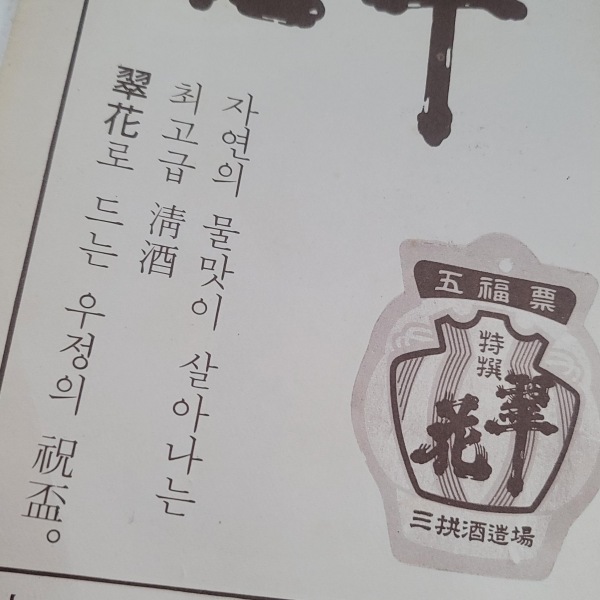 자연의 물맛이 살아나는
최고급 淸酒
翠花로 드는 우정의 祝盃。
五福票
特撰
翠花
三拱酒造場